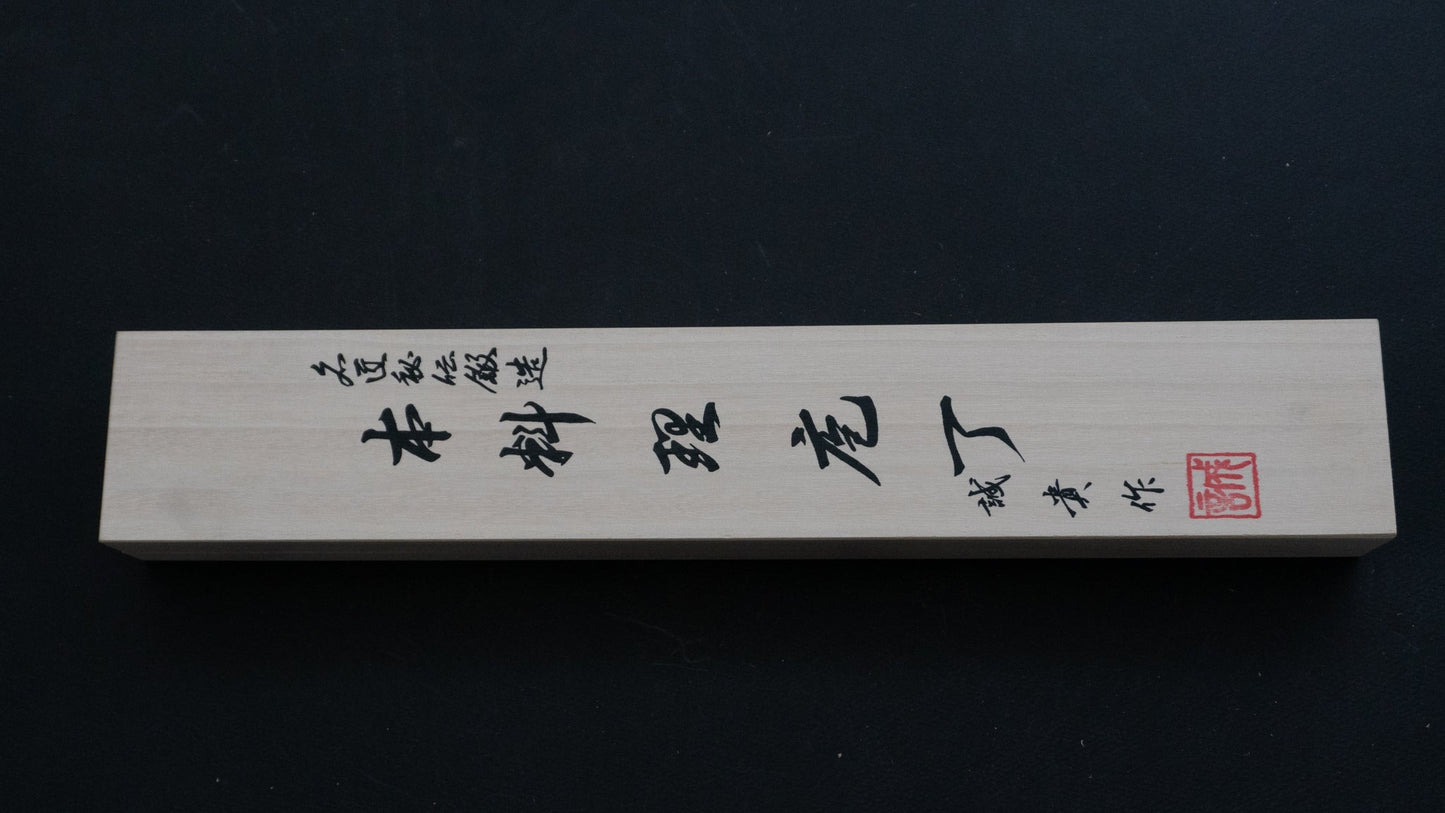 名匠秘伝鍛造
本料理庖丁
誠貴作